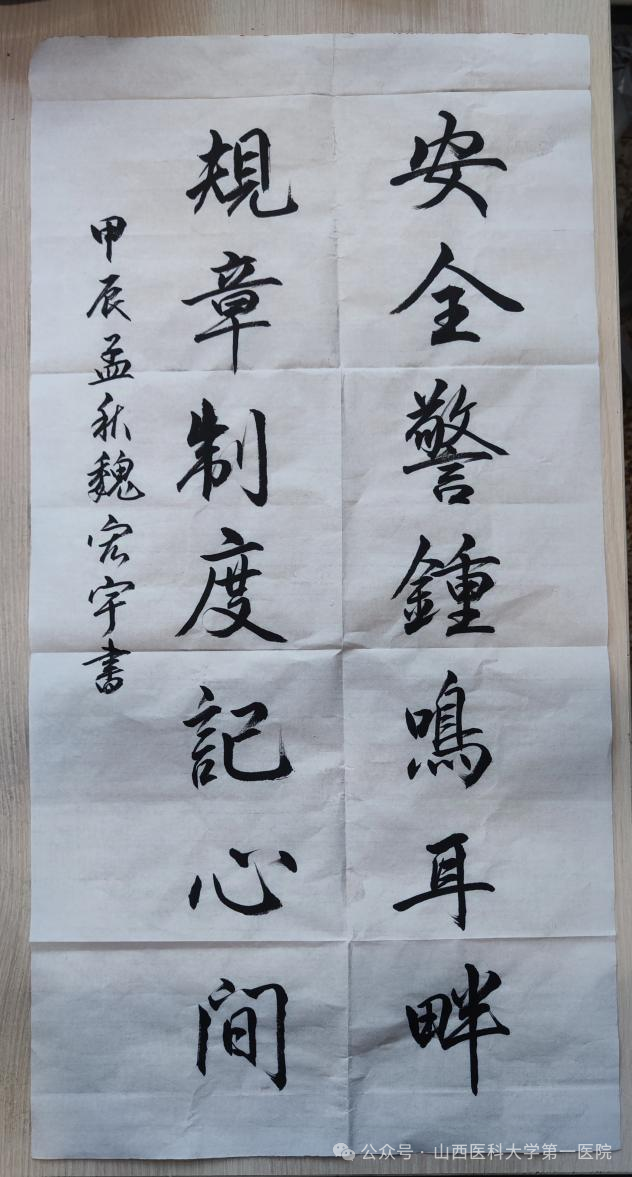 安全警鍾鳴耳畔
規章制度記心間
甲辰孟秋魏宏宇書
公众号·山西医科大学第一医院